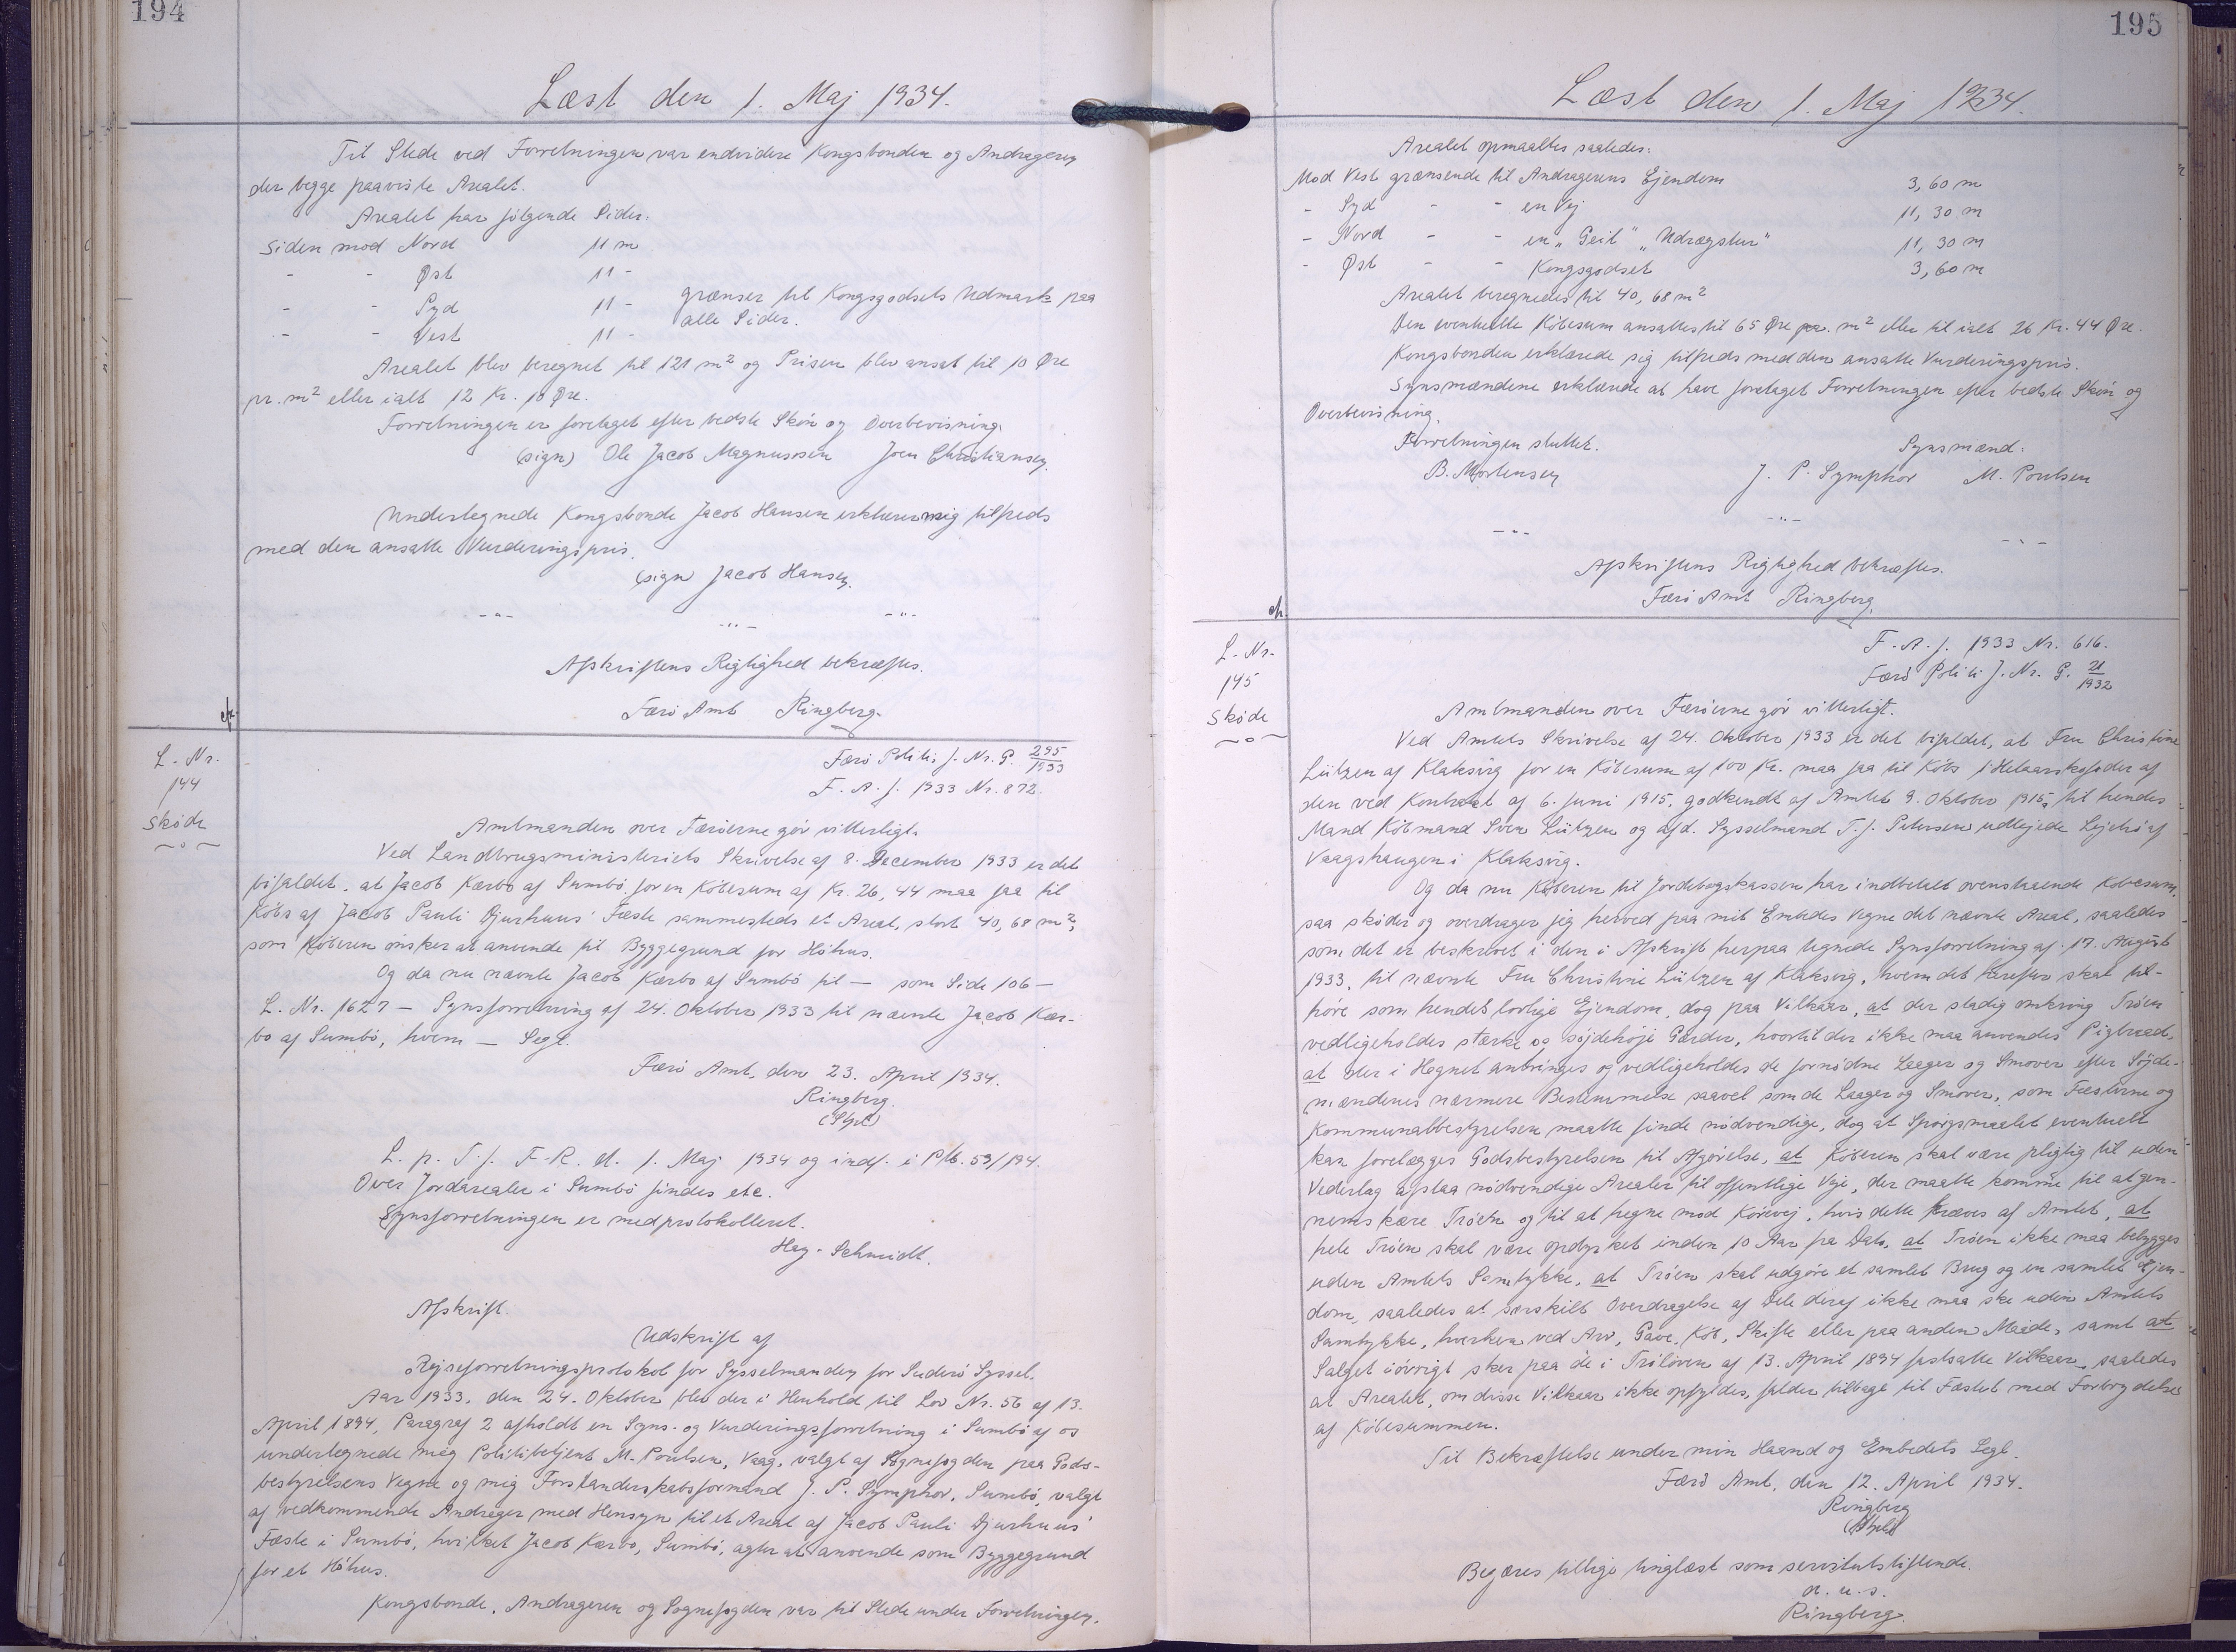 194
Læst den 1. Maj 1934.
Til Stede ved Forretningen var endvidere Kongsbonden og Andrageren
der begge paaviste Arealet.
Arealet har følgende Sider:
Siden mod Nord 11 m
- - Øst 11 -
- - Syd 11 - grænser til Kongsgodsets Udmark paa
- - Vest 11 - alle Sider.
Arealet blev beregnet til 121 m² og Prisen blev ansat til 10 Øre
pr. m² eller ialt 12 Kr. 10 Øre.
Forretningen er foretaget efter bedste Skön og Overbevisning.
(sign) Ole Jacob Magnussen Joen Christiansen.
Undertegnede Kongsbonde Jacob Hansen erklærer mig tilfreds
med den ansatte Vurderingspris.
(sign) Jacob Hansen.
-"- -"- -"-
Afskriftens Rigtighed bekræftes.
Færö Amt Ringberg.
L. Nr.
144
Sköde
Færö Politi J. Nr. G. 295/1933
F. A. J. 1933 Nr. 872.
Amtmanden over Færöerne gör vitterligt.
Ved Landbrugsministeriets Skrivelse af 8. December 1933 er det
bifaldet, at Jacob Kærbo af Sumbö for en Köbesum af Kr. 26,44 maa faa til
Köbs af Jacob Pauli Djurhuus' Fæste sammesteds et Areal, stort 40,68 m²,
som Köberen önsker at anvende til Byggegrund for Höhus.
Og da nu nævnte Jacob Kærbo af Sumbö til — som Side 106 —
L. Nr. 1627 — Synsforretning af 24. Oktober 1933 til nævnte Jacob Kær-
bo af Sumbö, hvem — Segl.
Færö Amt, den 23. April 1934.
Ringberg.
(Stpl)
L. p. T. f. F. R. d. 1. Maj 1934 og indf. i Ptb. 59/194.
Over Jordarealer i Sumbö findes etc.
Synsforretningen er medprotokolleret.
Hey-Schmidt.
Afskrift.
Udskrift af
Rejseforretningsprotokol for Sysselmanden for Suderö Syssel.
Aar 1933, den 24. Oktober blev der i Henhold til Lov Nr. 56 af 13.
April 1894, Paragraf 2 afholdt en Syns- og Vurderingsforretning i Sumbö af os
undertegnede mig Politibetjent M. Poulsen, Vaag, valgt af Sognefogden paa Gods-
bestyrelsens Vegne og mig Forstanderskabsformand J. P. Symphor, Sumbö, valgt
af vedkommende Andrager med Hensyn til et Areal af Jacob Pauli Djurhuus'
Fæste i Sumbö, hvilket Jacob Kærbo, Sumbö, agter at anvende som Byggegrund
for et Höhus.
Kongsbonde, Andrageren og Sognefogden var til Stede under Forretningen.
195
Læst den 1. Maj 1934.
Arealet opmaaltes saaledes:
Mod Vest grænsende til Andragerens Ejendom 3,60 m
- Syd - - en Vej 11,30 m
- Nord - - en „Geil" „Udrægstur" 11,30 m
- Øst - - Kongsgodset 3,60 m
Arealet beregnedes til 40,68 m²
Den eventuelle Köbesum ansattes til 65 Øre pr. m² eller til ialt 26 Kr. 44 Øre.
Kongsbonden erklærede sig tilfreds med den ansatte Vurderingspris.
Synsmændene erklærede at have foretaget Forretningen efter bedste Skön og
Overbevisning.
Forretningen sluttet. Synsmænd:
B. Mortensen J. P. Symphor M. Poulsen
-"- -"- -"-
Afskriftens Rigtighed bekræftes.
Færö Amt Ringberg.
L. Nr.
145
Sköde
F. A. J. 1933 Nr. 616.
Færö Politi J. Nr. G. 21/1932
Amtmanden over Færöerne gör vitterligt.
Ved Amtets Skrivelse af 24. Oktober 1933 er det bifaldet, at Fru Christine
Lützen af Klaksvig for en Köbesum af 100 Kr. maa faa til Köbs 1 Helaarskofoder af
den ved Kontrakt af 6. Juni 1915, godkendt af Amtet 9. Oktober 1915, til hendes
Mand Köbmand Sven Lützen og afd. Sysselmand T. J. Petersen udlejede Lejetrö af
Vaagshaugen i Klaksvig.
Og da nu Köberen til Jordebogskassen har indbetalt ovenstaaende Köbesum,
saa sköder og overdrager jeg herved paa mit Embedes Vegne det nævnte Areal, saaledes
som det er beskrevet i den i Afskrift herpaa tegnede Synsforretning af 17. August
1933, til nævnte Fru Christine Lützen af Klaksvig, hvem det herefter skal til-
höre som hendes lovlige Ejendom, dog paa Vilkaar, at der stadig omkring Tröen
vedligeholdes stærke og söjdehöje Gærder, hvortil der ikke maa anvendes Pigtraad,
at der i Hegnet anbringes og vedligeholdes de fornödne Laager og Smover efter Söjde-
mændenes nærmere Bestemmelse saavel som de Laager og Smover, som Fæsterne og
Kommunalbestyrelsen maatte finde nödvendige, dog at Spörgsmaalet eventuelt
kan forelægges Godsbestyrelsen til Afgörelse, at Köberen skal være pligtig til uden
Vederlag afstaa nödvendige Arealer til offentlige Veje, der maatte komme til at gen-
nemskære Tröen og til at hegne mod Körevej, hvis dette kræves af Amtet, at
hele Tröen skal være opdyrket inden 10 Aar fra Dato, at Tröen ikke maa bebygges
uden Amtets Samtykke, at Tröen skal udgöre et samlet Brug og en samlet Ejen-
dom, saaledes at særskilt Overdragelse af Dele deraf ikke maa ske uden Amtets
Samtykke, hverken ved Arv, Gave, Köb, Skifte eller paa anden Maade, samt at
Salget iövrigt sker paa de i Trölöven af 13. April 1894 fastsatte Vilkaar, saaledes
at Arealet, om disse Vilkaar ikke opfyldes, falder tilbage til Fæstet med Fortrydelse
af Köbesummen.
Til Bekræftelse under min Haand og Embedets Segl.
Færö Amt, den 12. April 1934.
Ringberg
(Stpl)
Begæres tillige tinglæst som servitutstiftende.
d. u. s.
Ringberg.